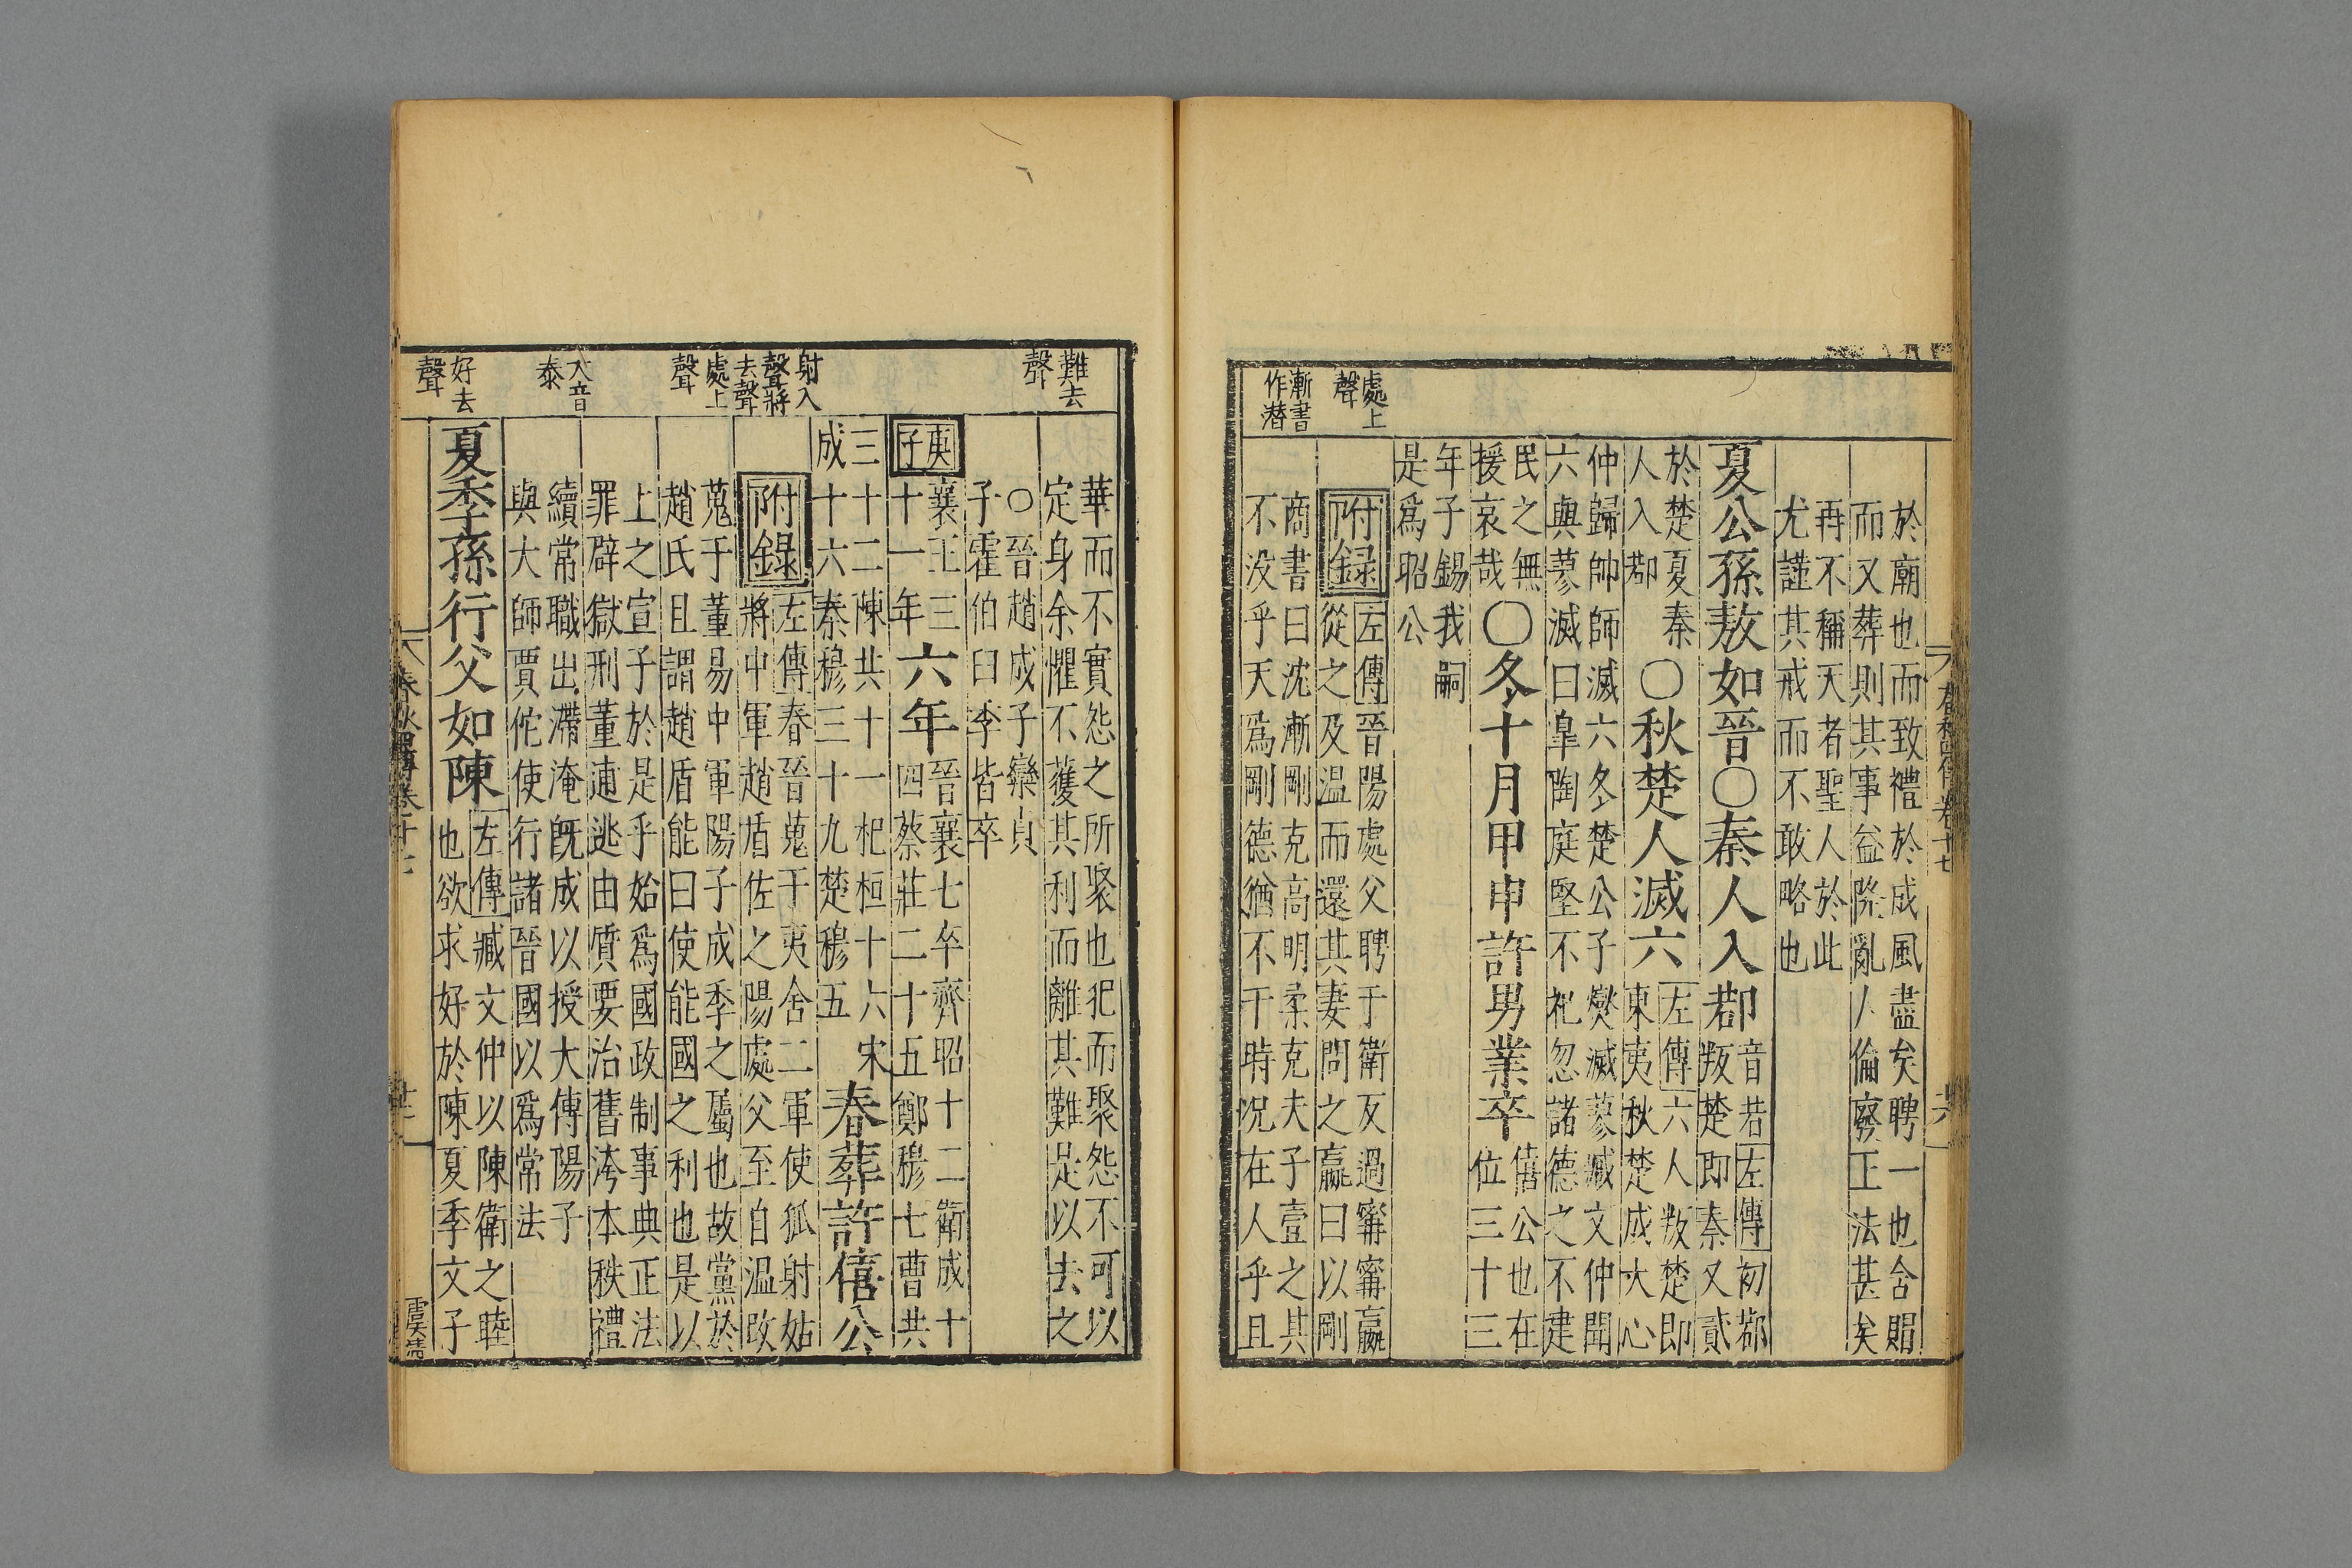 處上
聲
漸書
作潛
於廟也而致禮於成風盡矣聘一也含賵
而又葬則其事益隆亂人倫廢王法甚矣
再不稱天者聖人於此
尤謹其戒而不敢略也
夏公孫敖如晉○秦人入鄀
音若左傳初鄀
叛楚即秦又貳
於楚夏秦
人入鄀
○秋楚人滅六
左傳六人叛楚即
東夷秋楚成大心
仲歸帥師滅六冬楚公子燮滅蓼臧文仲聞
六與蓼滅曰臯陶庭堅不祀忽諸德之不建
民之無
援哀哉
○冬十月甲申許男業卒
僖公也在
位三十三
年子錫我嗣
是爲昭公
附録
左傳晉陽處父聘于衛反過甯甯嬴
從之及温而還其妻問之嬴曰以剛
商書曰沈漸剛克高明柔克夫子壹之其
不没乎天爲剛德猶不干時况在人乎且
難去
聲
射入
聲將
去聲
處上
聲
大音
泰
好去
聲
華而不實怨之所聚也犯而聚怨不可以
定身余懼不獲其利而離其難是以去之
○晉趙成子欒貞
子霍伯臼季皆卒
庚
子
襄王三
十一年
六年
晉襄七卒齊昭十二衛成十
四蔡莊二十五鄭穆七曹共
三十二陳共十一杞桓十六宋
成十六秦穆三十九楚穆五
春葬許僖公
附録
左傳春晉蒐于夷舍二軍使狐射姑
將中軍趙盾佐之陽處父至自温改
蒐于董易中軍陽子成季之屬也故黨於
趙氏且謂趙盾能曰使能國之利也是以
上之宣子於是乎始爲國政制事典正法
罪辟獄刑董逋逃由質要治舊洿本秩禮
續常職出滯淹旣成以授大傅陽子
與大師賈佗使行諸晉國以爲常法
夏季孫行父如陳
左傳臧文仲以陳衛之睦
也欲求好於陳夏季文子